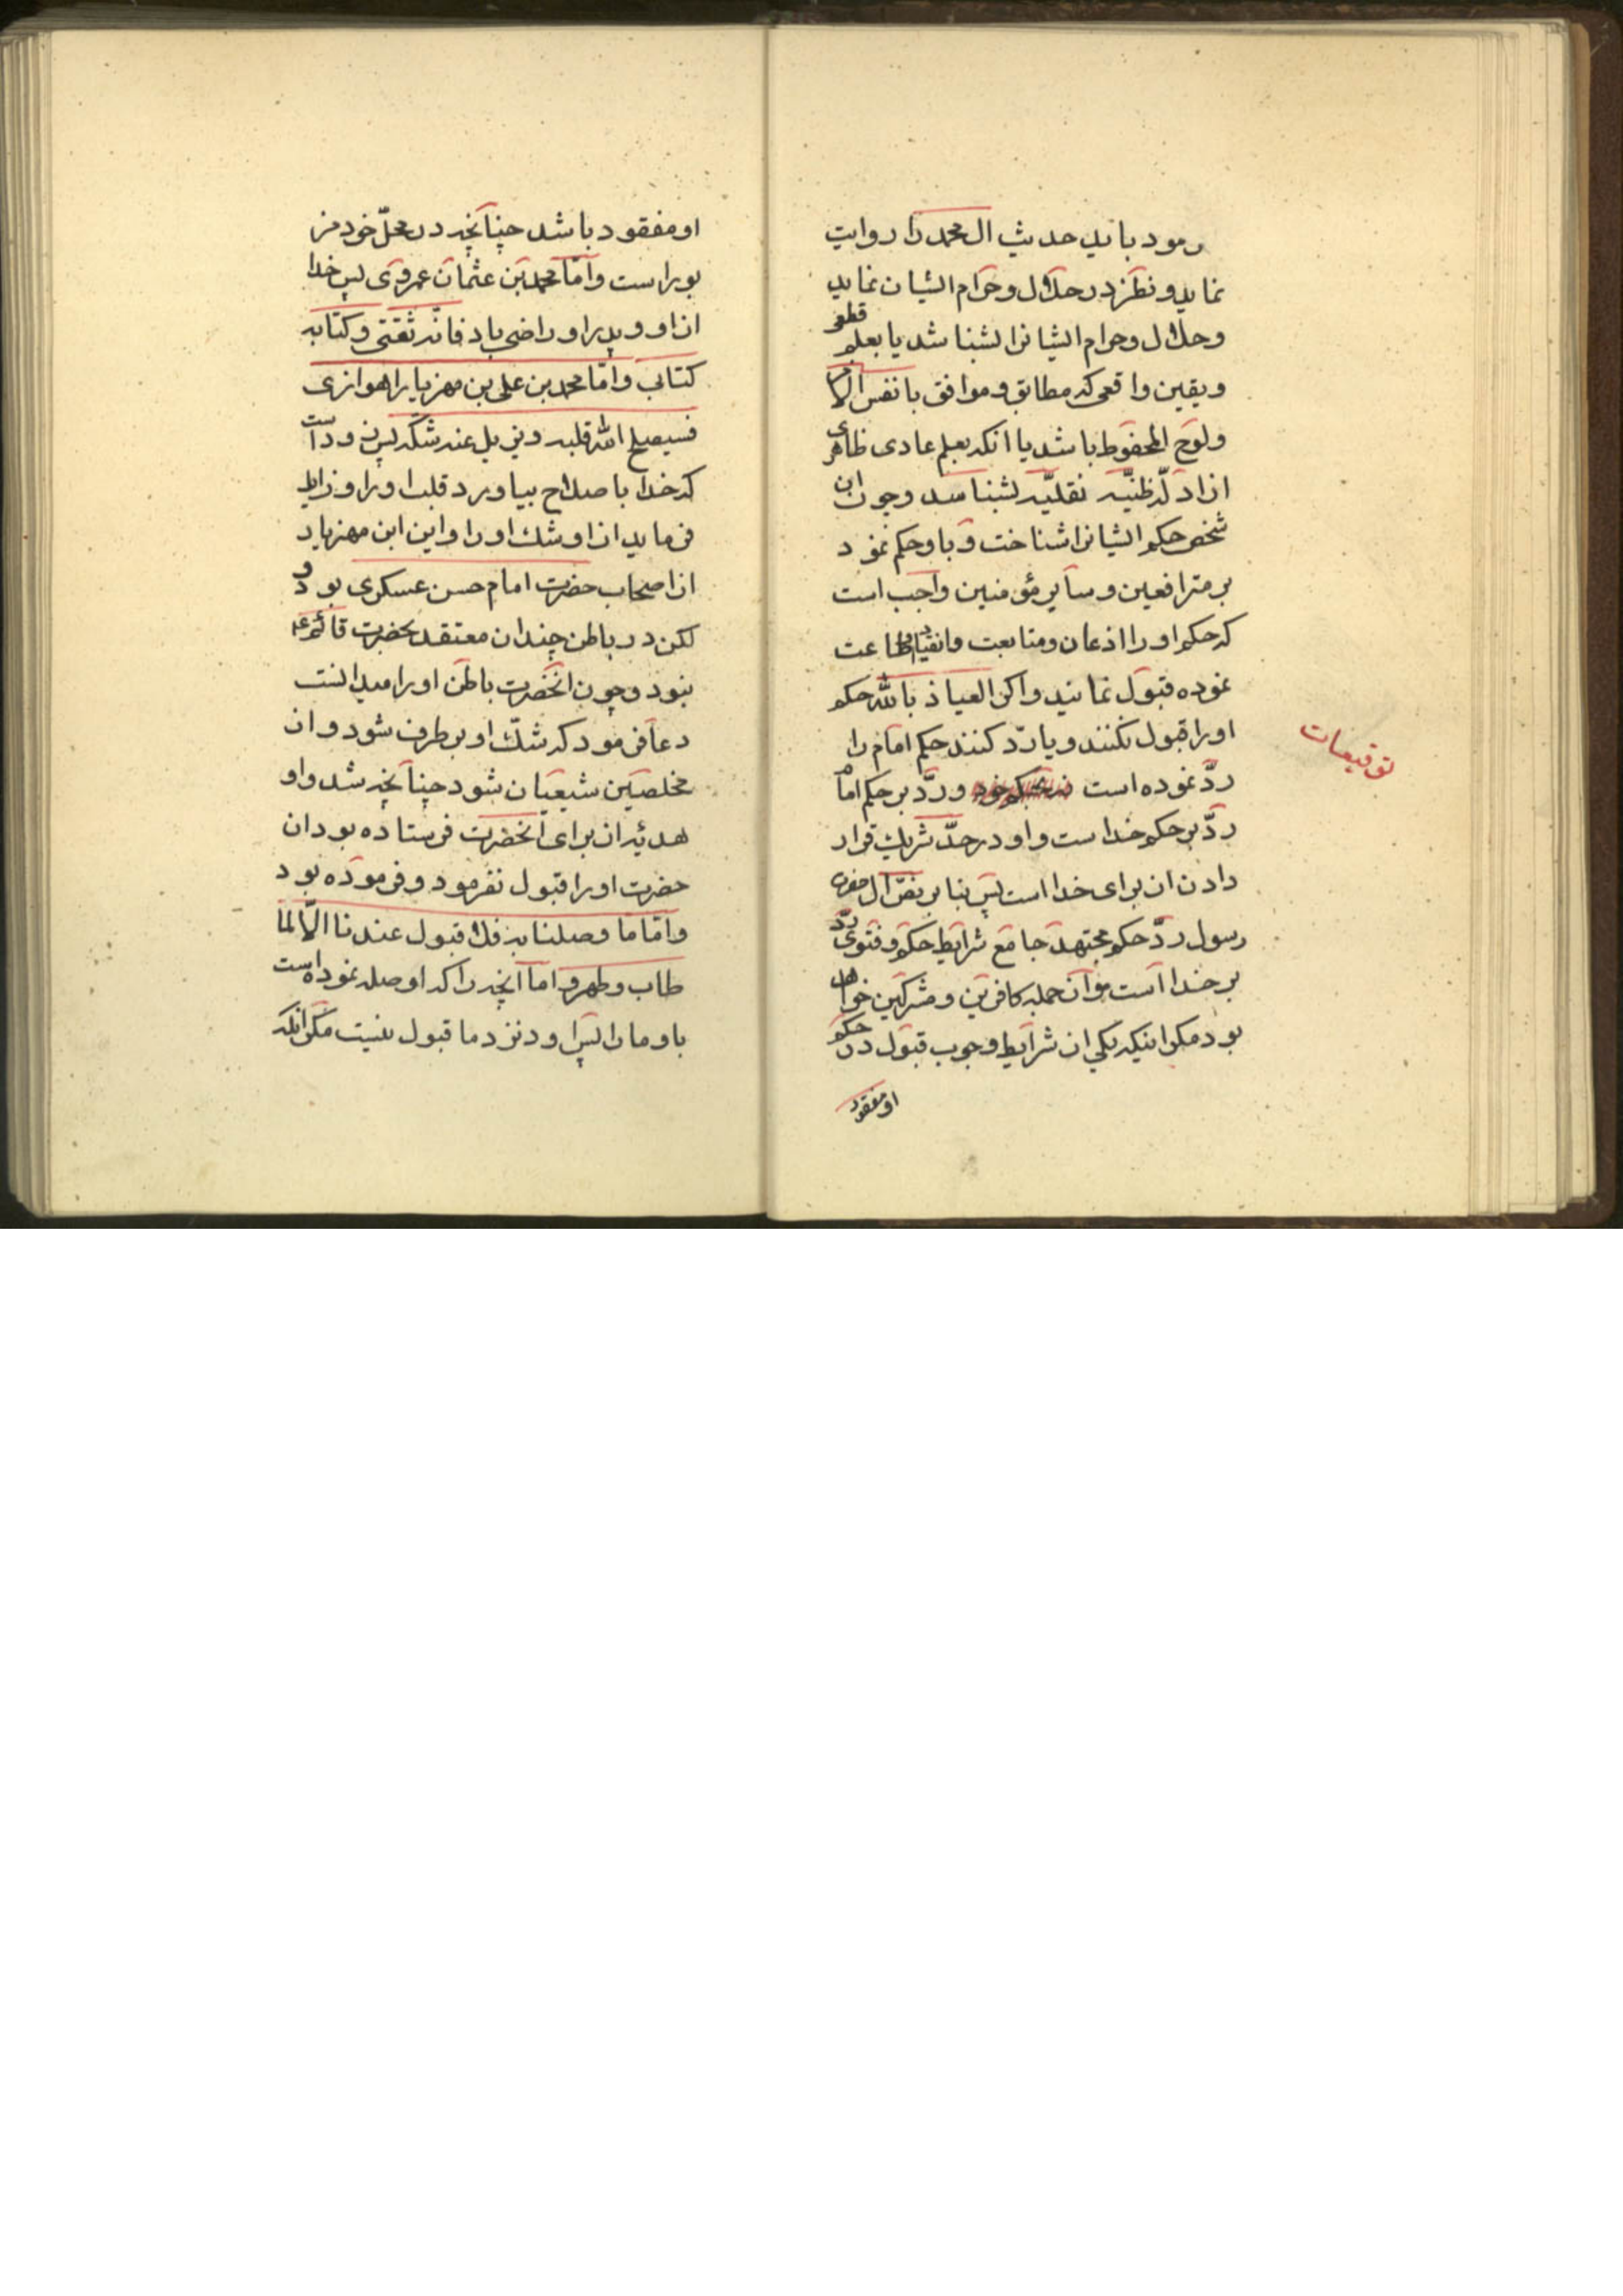 رمود باید حدیث ال محمد را روایت
نماید و نظر در حلال و حرام ایشان نماید
و حلال و حرام ایشانرا بشناشد یا بعلم قطعی
و یقین واقعی که مطابق و موافق با نفس الا
و لوح المحفوظ باشد یا انکه بعلم عادی ظاهری
از ادلّه ظنیّه نقلیّه بشناسد و چون ان
شخص حکم ایشانرا شناخت و باو حکم نمود
بر مترافعین و سایر مؤمنین واجب است
که حکم او را اذعان و متابعت و انقیاد و اطاعت
نموده قبول نمایند و اگر العیاذ بالله حکم
او را قبول نکنند و یا ردّ کنند حکم امام را
توقیعات
ردّ نموده است و ردّ بر حکم امام
ردّ بر حکم خداست و او در حدّ شریك قرار
دادن ان برای خدا است پس بنا بر نصّ ال حضرت
رسول ردّ حکم مجتهد جامع شرایط حکم و فتوی ردّ
بر خدا است و از جمله کافرین و مشرکین خواهد
بود مگر اینکه یکی از شرایط وجوب قبول در حکم
او مفقود
او مفقود باشد چنانچه در محلّ خود مز
بور است و امّا محمد بن عثمان عمروی پس خدا
از او و پدر او راضی باد فانّه ثقتی و کتابه
کتابی و امّا محمد بن علی بن مهزیار اهوازی
فسیصلح الله قلبه و یزیل عنه شکّه پس زود است
که خدا باصلاح بیاورد قلب او را و زایل
فرماید از او شك او را و این ابن مهزیار
از اصحاب حضرت امام حسن عسکری بود و
لکن در باطن چندان معتقد بحضرت قائم ع
نبود و چون انحضرت باطن او را میدانست
دعا فرمود که شكّ او بر طرف شود و از
مخلصین شیعیان شود چنانچه شد و او
هدیّه ان برای انحضرت فرستاده بود ان
حضرت او را قبول نفرمود و فرموده بود
و امّا ما وصلتنا به فلا قبول عندنا الّا لما
طاب و طهر و اما انچه را که او صله نموده است
باو ما را پس او در نزد ما قبول نیست مگر انکه